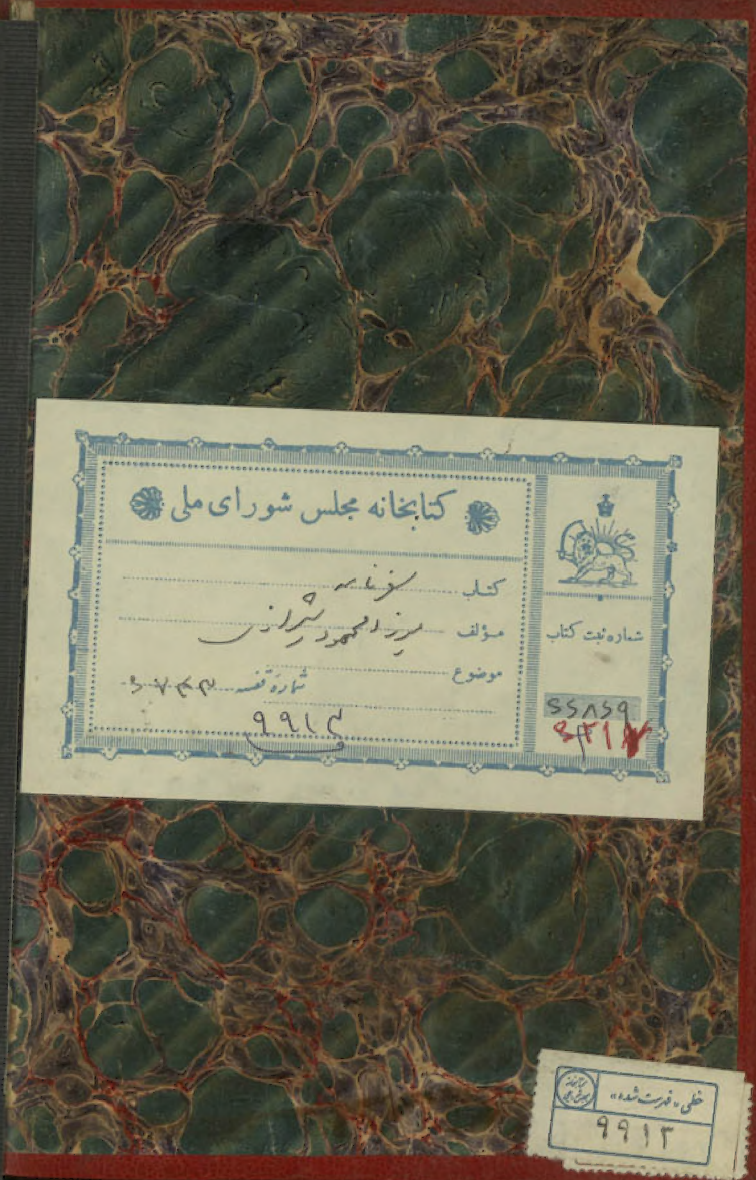 کتابخانه مجلس شورای ملی
کتاب سفرنامه
مؤلف میرزا محمود شیرازی
موضوع
شماره قفسه
۹۹۱۳
شماره ثبت کتاب
خطی «فهرست شده»
۹۹۱۳